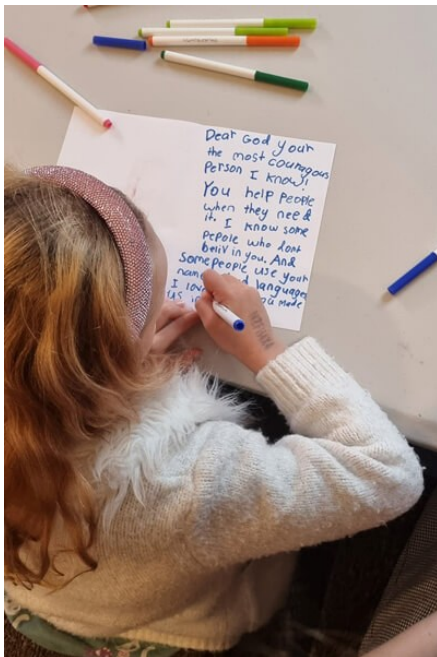 Dear God your
the most couragous
Person I know!
You help people
when they need
it. I know some
pepole who dont
beliv in you. And
some people use your
nam d languages
I lov
us i ou made